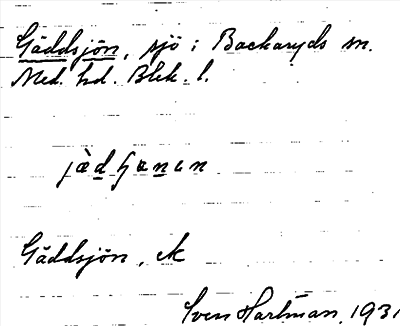 Gäddsjön, sjö i Backaryds sn.
Med. hd. Blek. l.
Gäddsjön, ek
Sven Hartman. 1931